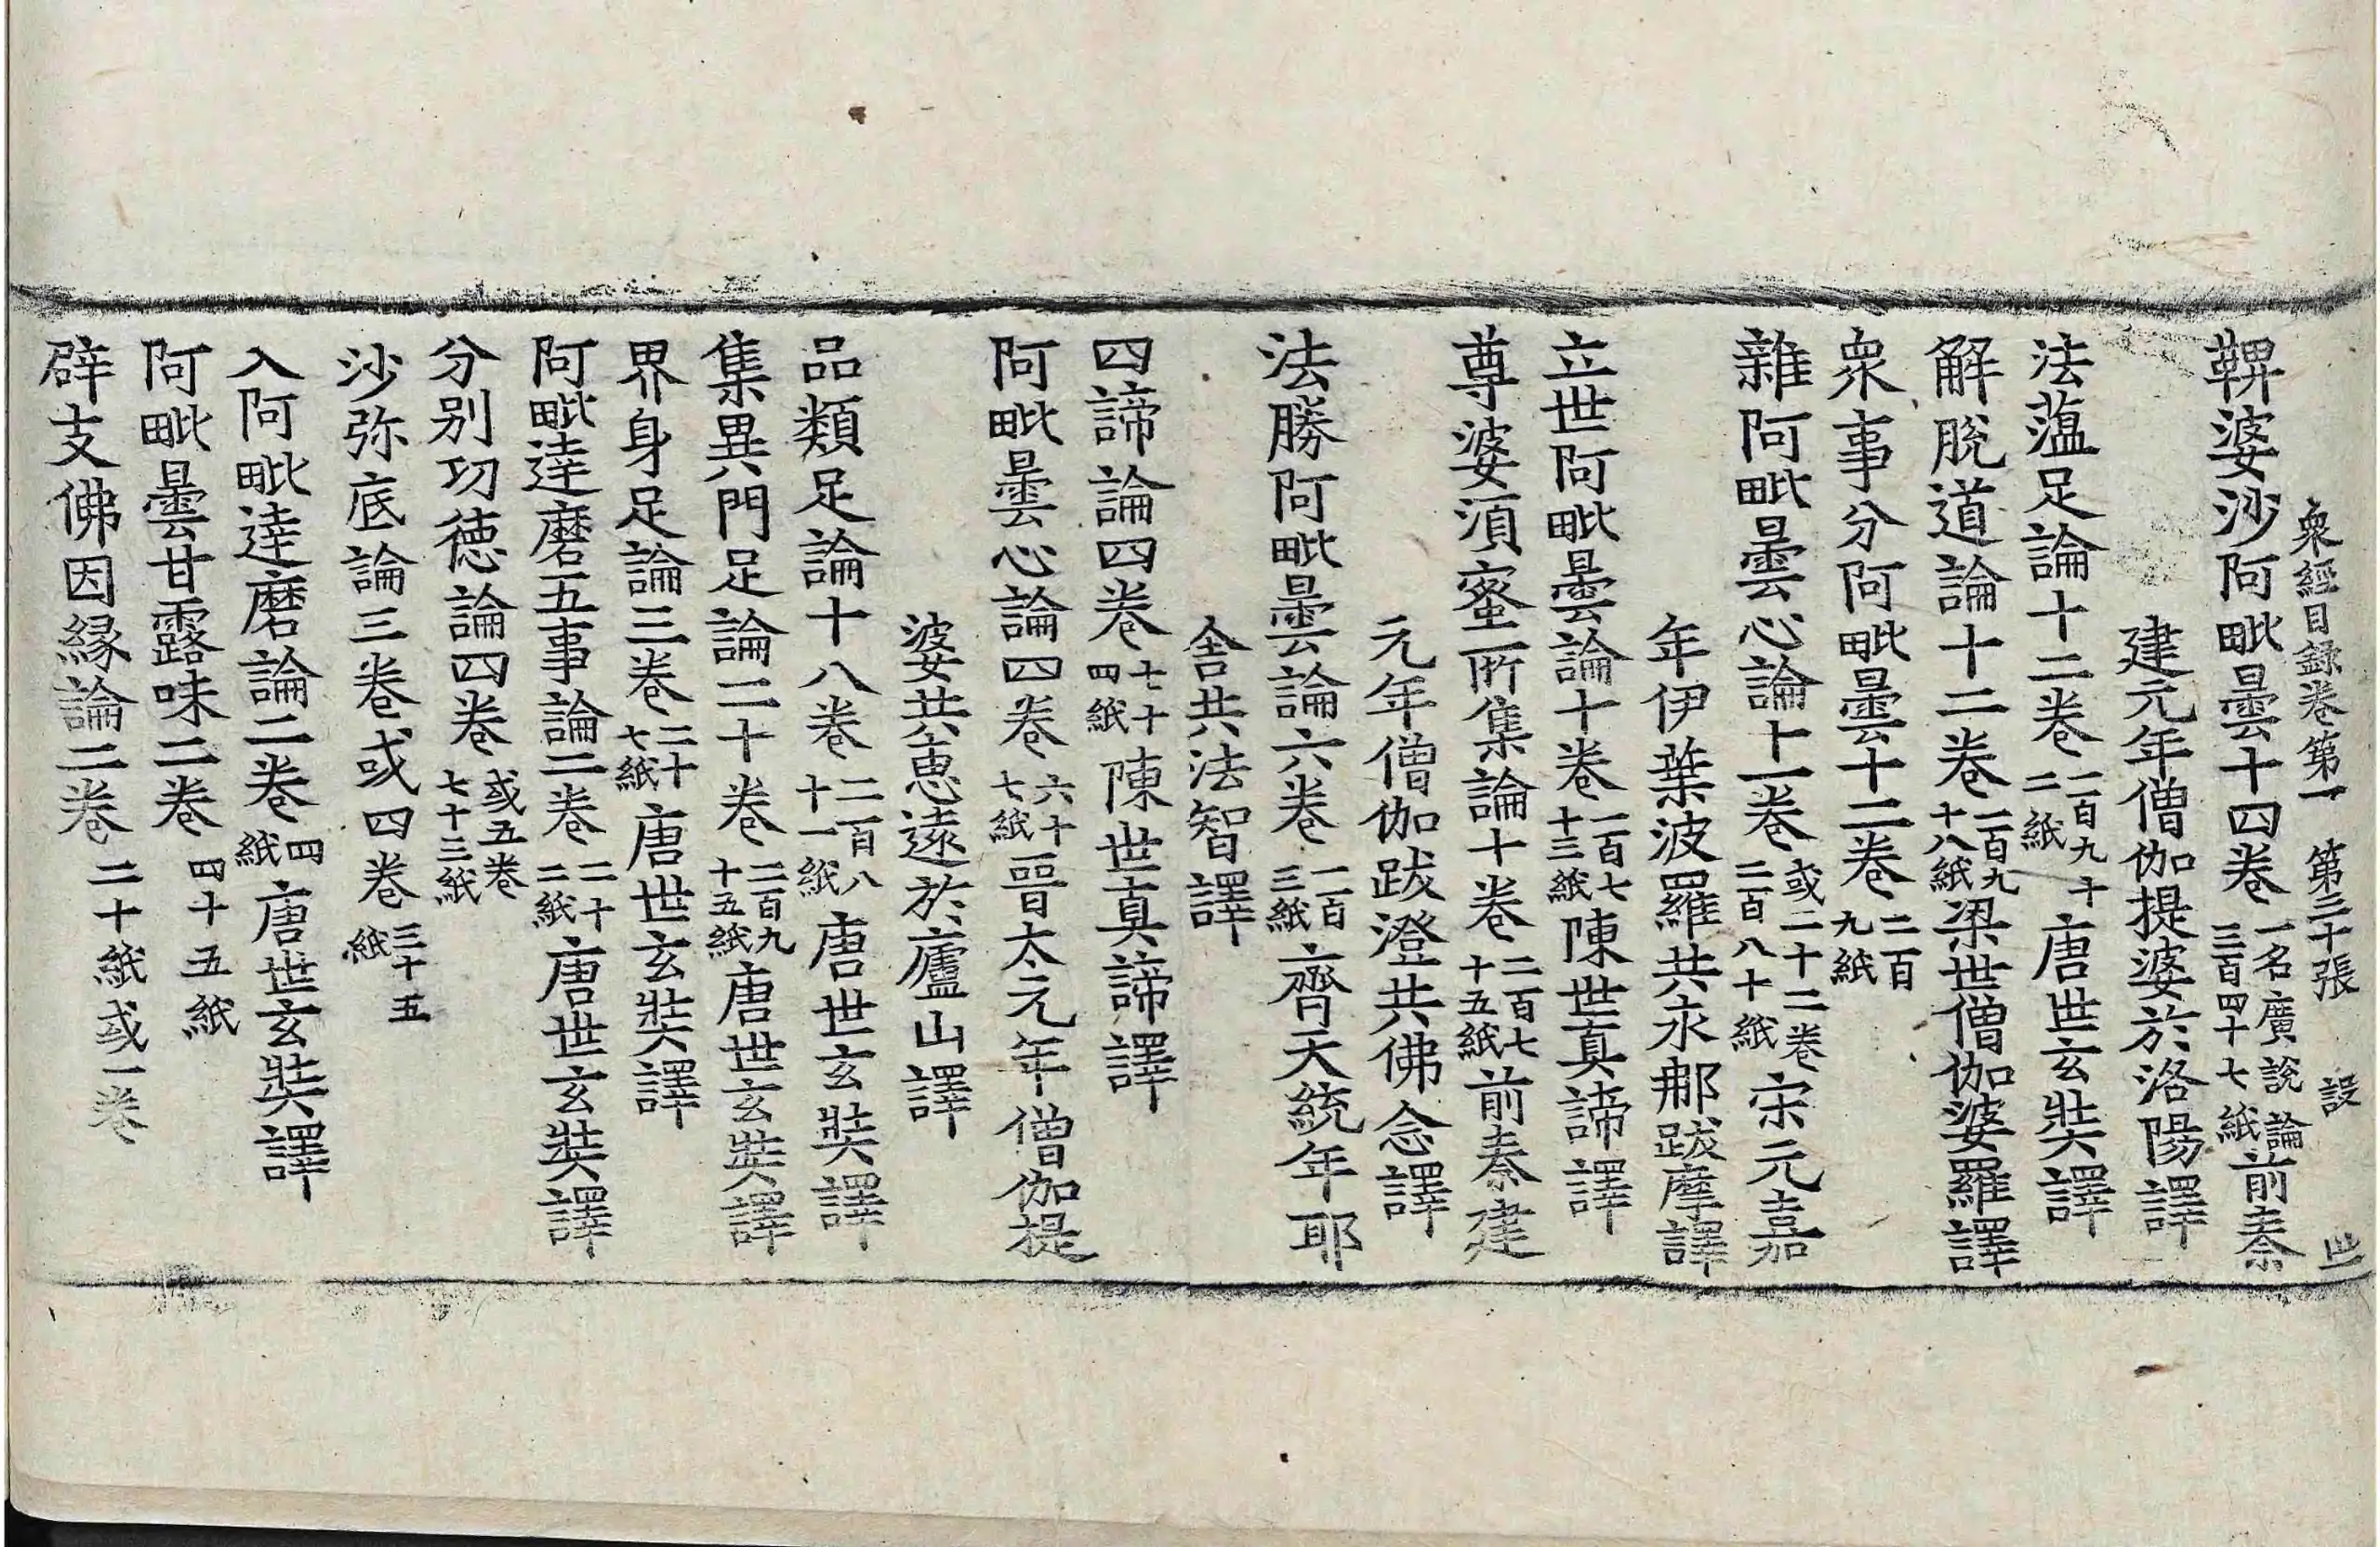 衆經目錄卷第一 第三十張 設
鞞婆沙阿毗曇十四卷一名廣說論三百四十七紙前秦
建元年僧伽提婆於洛陽譯
法薀足論十二卷一百九十二紙唐世玄奘譯
解脫道論十二卷一百九十八紙梁世僧伽婆羅譯
衆事分阿毗曇十二卷二百九紙
雜阿毗曇心論十一卷或二十二卷二百八十紙宋元嘉
年伊葉波羅共求那跋摩譯
立世阿毗曇論十卷一百七十三紙陳世真諦譯
尊婆須蜜所集論十卷二百七十五紙前秦建
元年僧伽跋澄共佛念譯
法勝阿毗曇論六卷一百三紙齊天統年耶
舍共法智譯
四諦論四卷七十四紙陳世真諦譯
阿毗曇心論四卷六十七紙晉太元年僧伽提
婆共惠遠於廬山譯
品類足論十八卷二百八十一紙唐世玄奘譯
集異門足論二十卷二百九十五紙唐世玄奘譯
界身足論三卷二十七紙唐世玄奘譯
阿毗達磨五事論二卷二十二紙唐世玄奘譯
分别功德論四卷或五卷七十三紙
沙弥底論三卷或四卷三十五紙
入阿毗達磨論二卷四紙唐世玄奘譯
阿毗曇甘露味二卷四十五紙
辟支佛因緣論二卷二十紙或一卷